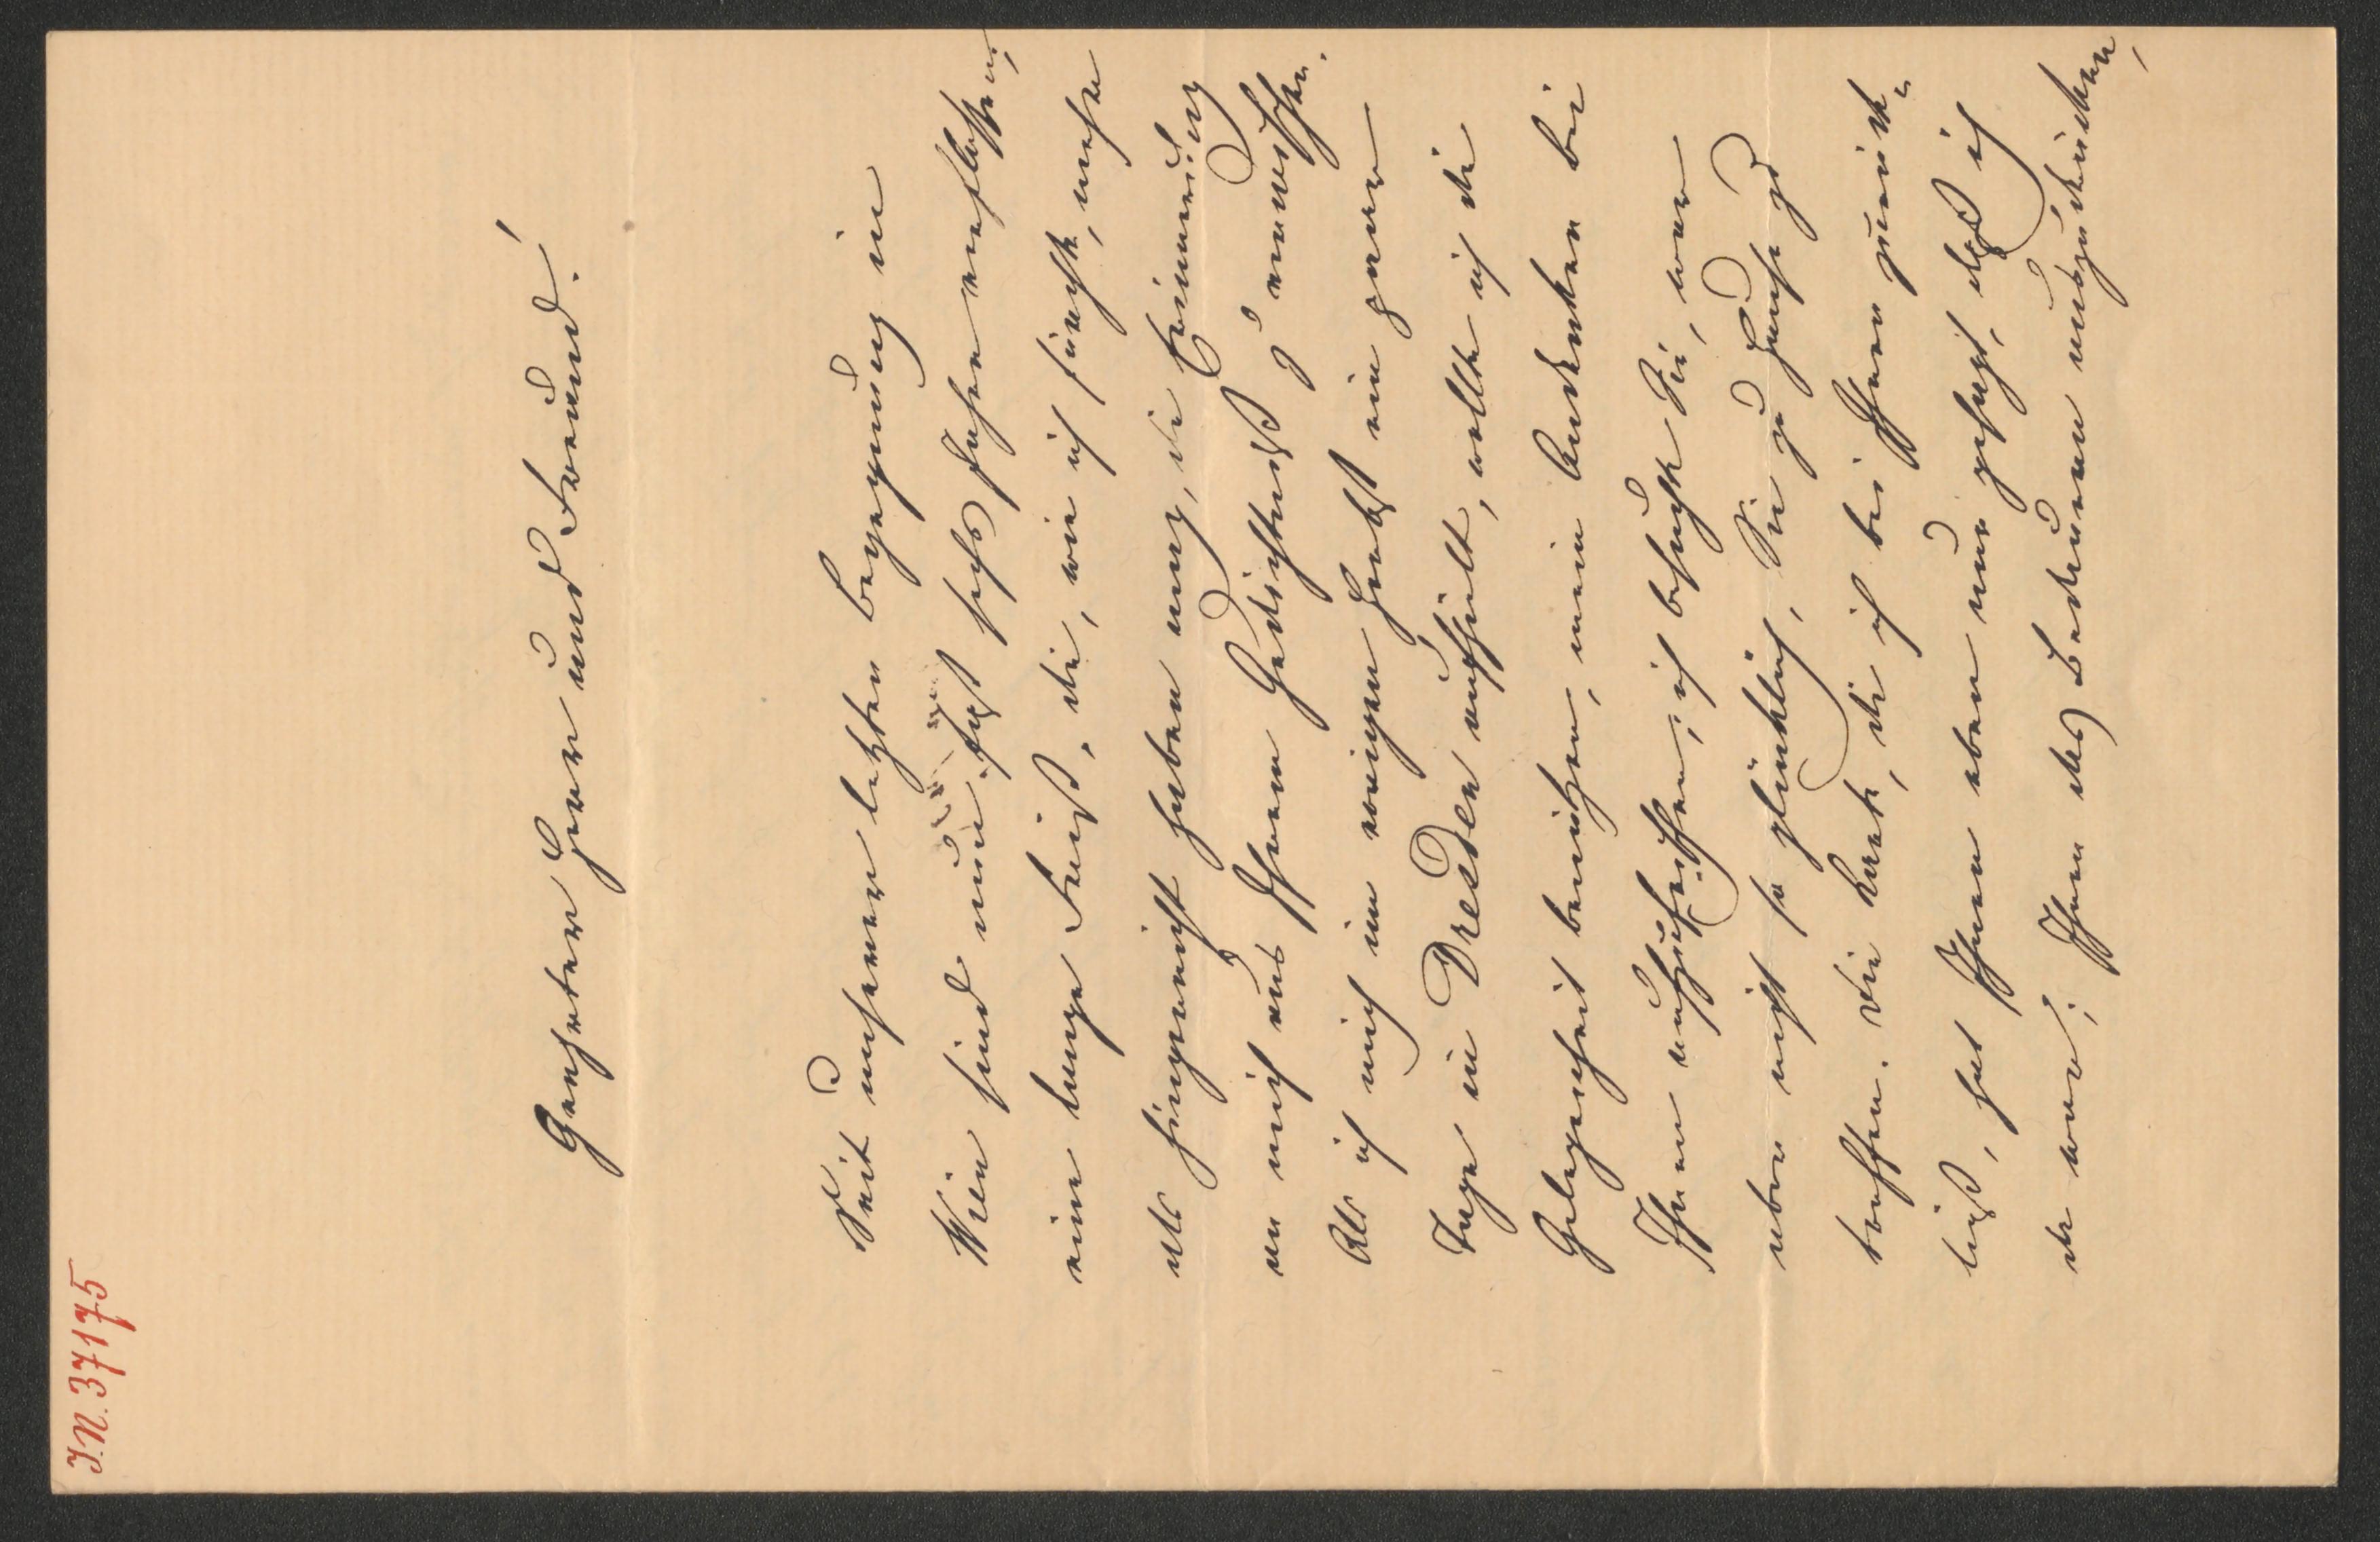 J.N. 37175
Geehrter Herr und Freund!
Seit unserer letzten Begegnung in
Wien sind nun fast sechs Jahre verflossen,
eine lange Frist, die, wie ich fürchte, mehr
als hingereicht haben mag, die Erinnerung
an mich aus Ihrem Gedächtniß zu verwischen.
Als ich mich im vorigen Herbst ein paar
Tage in Dresden aufhielt, wollte ich die
Gelegenheit benützen, mein Andenken bei
Ihnen aufzufrischen, ich besuchte Sie, war
aber nicht so glücklich, Sie zu Hause zu
treffen. Die Karte, die ich bei Ihnen zurück-
ließ, hat Ihnen eben nur gesagt, daß ich
da war; Ihnen das Bedauern auszudrücken,